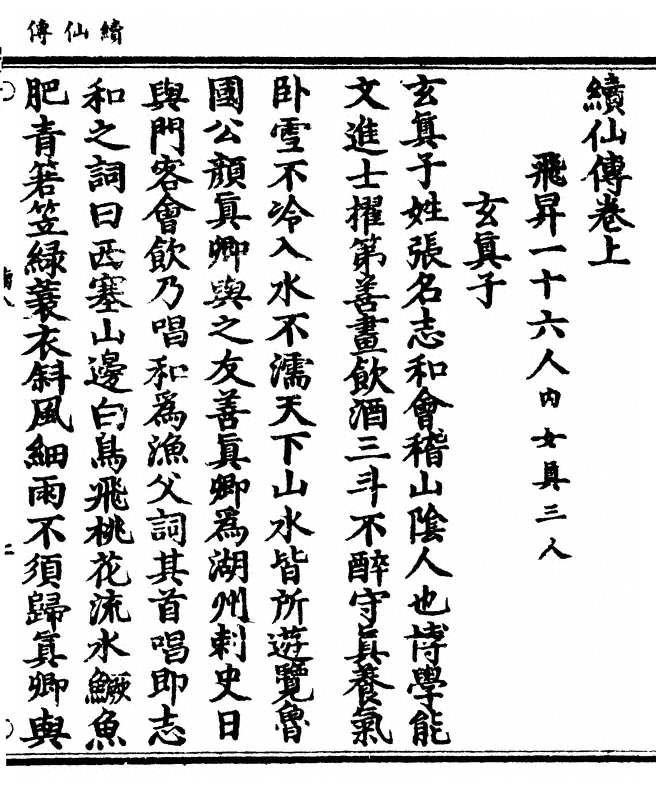 續仙傳
續仙傳卷上
飛昇一十六人內女真三人
玄真子
玄真子姓張名志和會稽山陰人也博學能
文進士擢第善畫飲酒三斗不醉守真養氣
卧雪不冷入水不濡天下山水皆所遊覽魯
國公顏真卿與之友善真卿為湖州刺史日
與門客會飲乃唱和為漁父詞其首唱即志
和之詞曰西塞山邊白鳥飛桃花流水鱖魚
肥青箬笠綠蓑衣斜風細雨不須歸真卿與